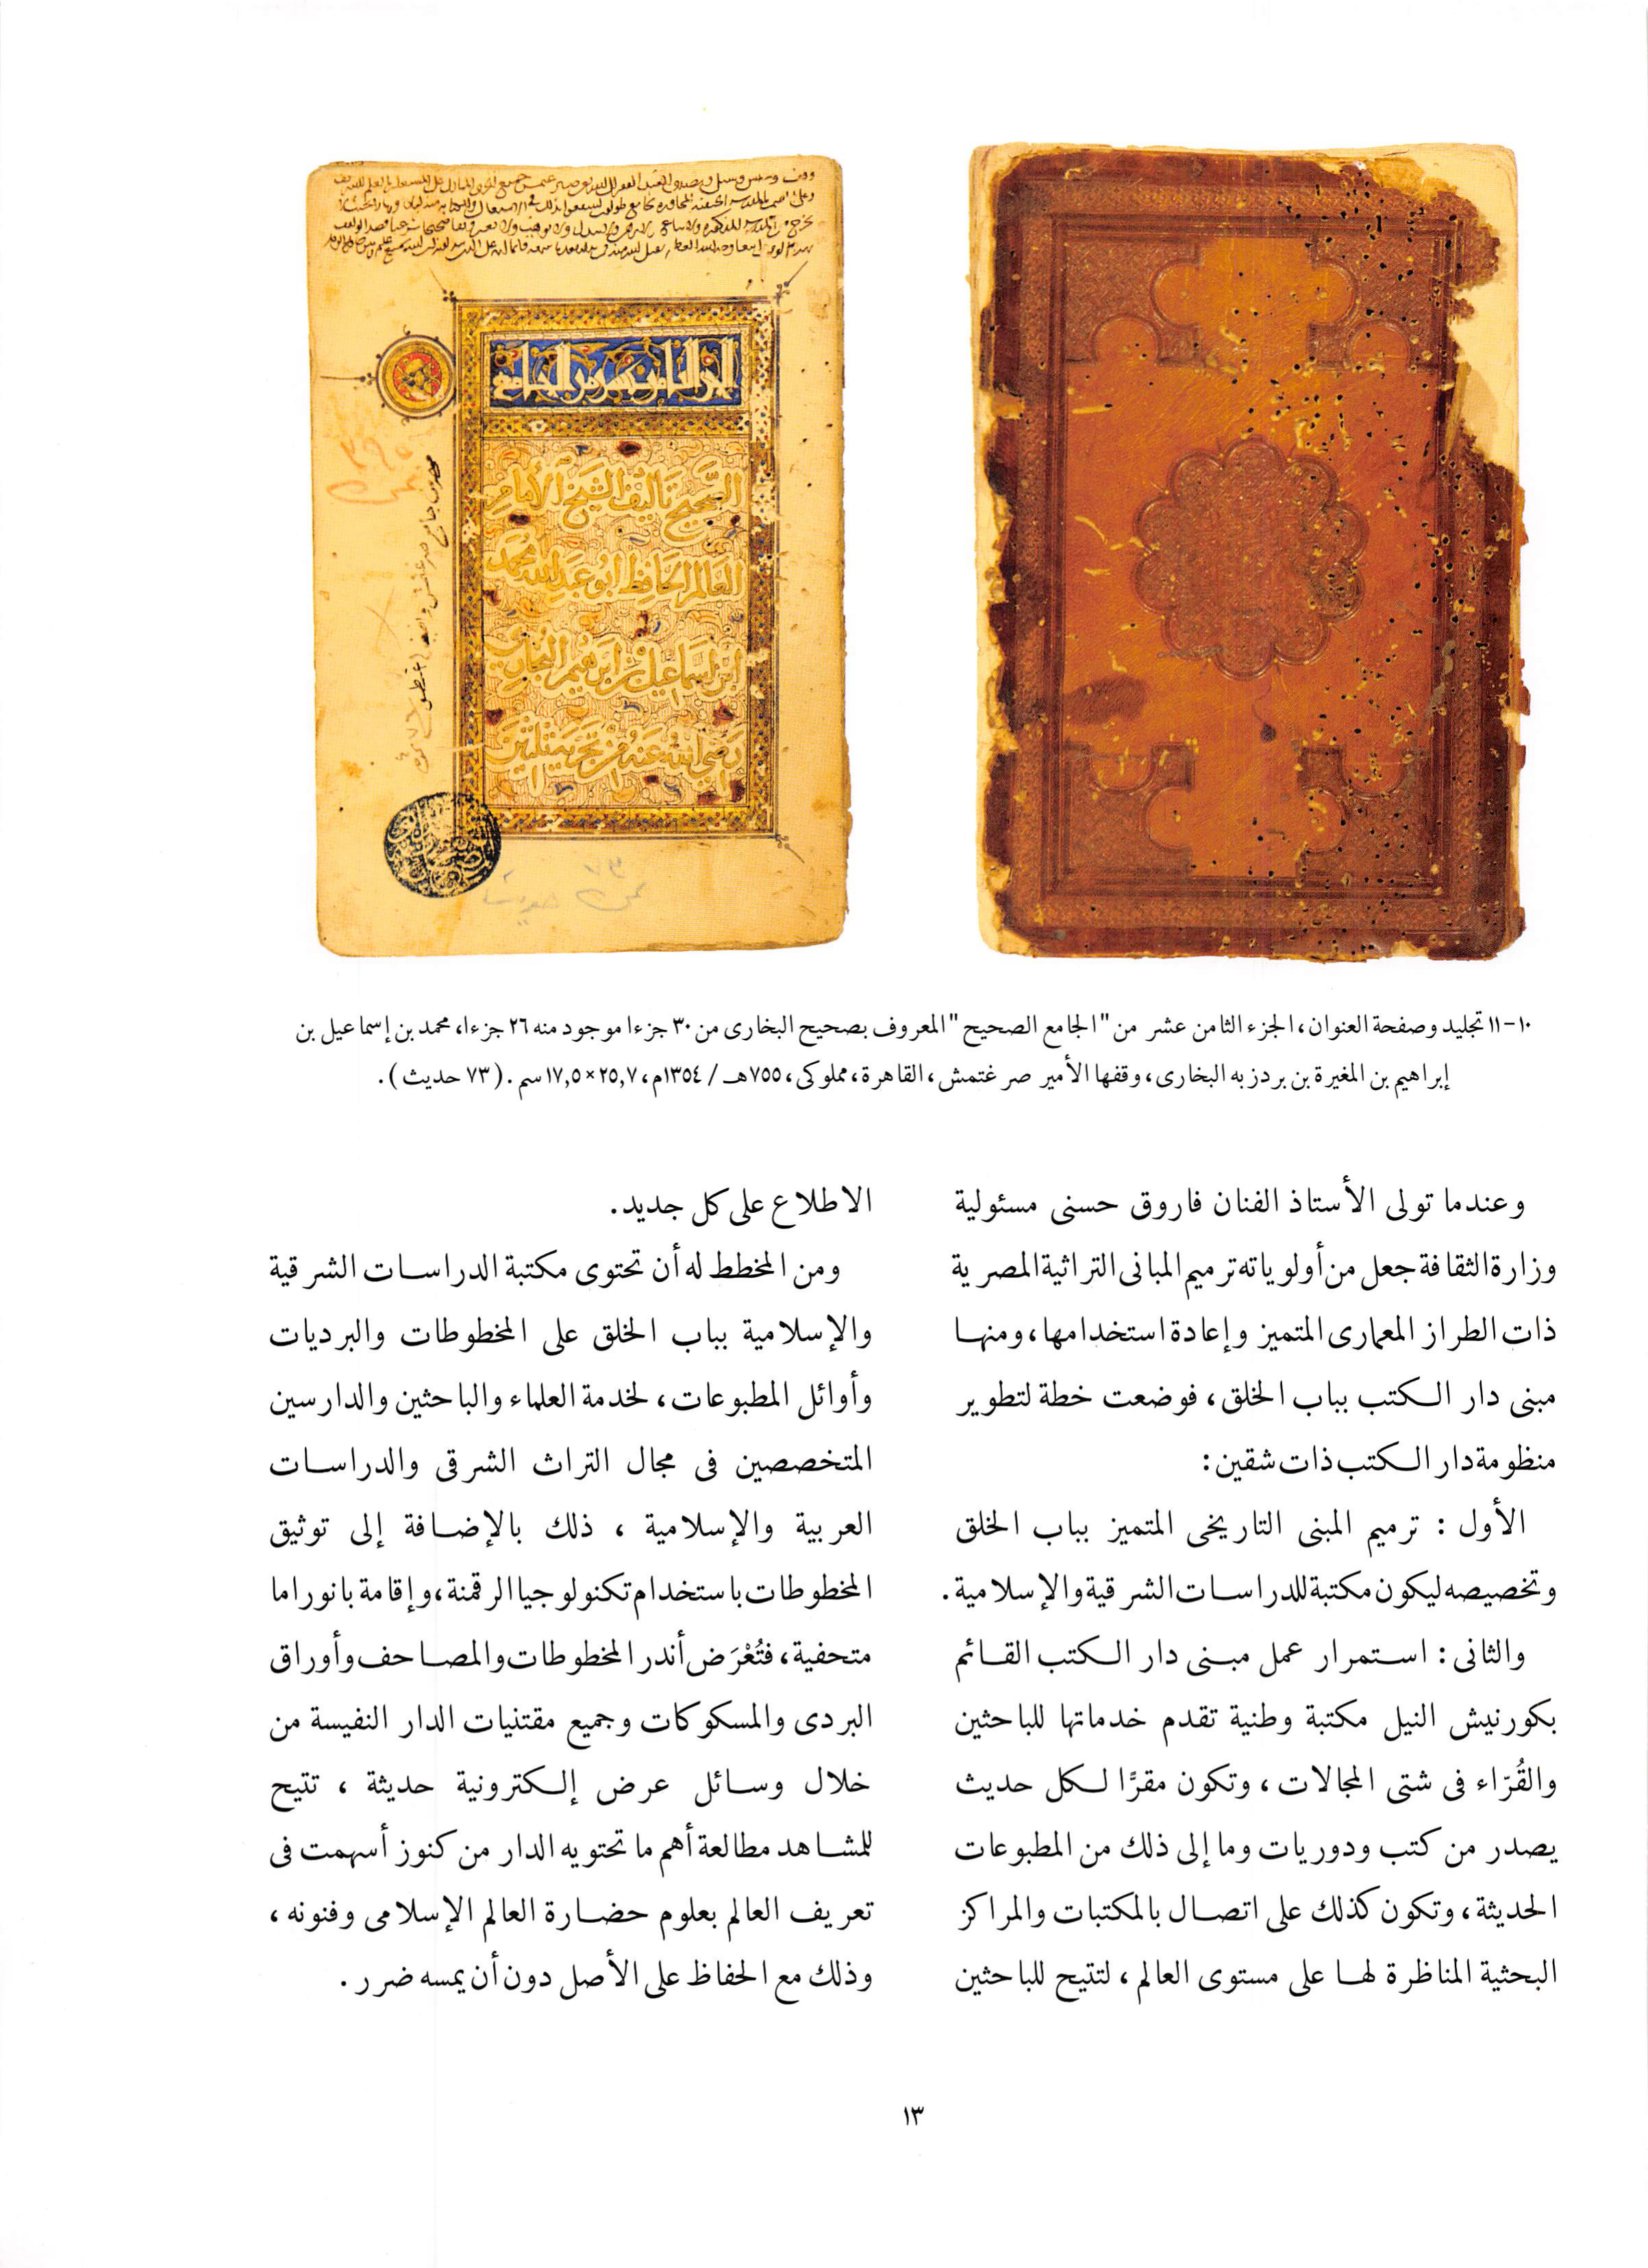 الجزء الثامن عشر من الجامع
الصحيح تأليف الشيخ الأمام
العالم الحافظ ابو عبد الله محمد
ابن اسماعيل بن ابرهيم البخاري
رضي الله عنه من تجزية ثلثين
١٠-١١ تجليد وصفحة العنوان، الجزء الثامن عشر من "الجامع الصحيح" المعروف بصحيح البخارى من ٣٠ جزءا موجود منه ٢٦ جزءا، محمد بن إسماعيل بن
إبراهيم بن المغيرة بن بردزبه البخارى، وقفها الأمير صرغتمش، القاهرة، مملوكى، ٧٥٥هـ / ١٣٥٤م، ٢٥,٧×١٧,٥ سم. (٧٣ حديث).
وعندما تولى الأستاذ الفنان فاروق حسنى مسئولية
وزارة الثقافة جعل من أولوياته ترميم المبانى التراثية المصرية
ذات الطراز المعمارى المتميز وإعادة استخدامها، ومنها
مبنى دار الكتب بباب الخلق، فوضعت خطة لتطوير
منظومة دار الكتب ذات شقين:
الأول : ترميم المبنى التاريخى المتميز بباب الخلق
وتخصيصه ليكون مكتبة للدراسات الشرقية والإسلامية.
والثانى: استمرار عمل مبنى دار الكتب القائم
بكورنيش النيل مكتبة وطنية تقدم خدماتها للباحثين
والقُرّاء فى شتى المجالات، وتكون مقرًّا لكل حديث
يصدر من كتب ودوريات وما إلى ذلك من المطبوعات
الحديثة، وتكون كذلك على اتصال بالمكتبات والمراكز
البحثية المناظرة لها على مستوى العالم، لتتيح للباحثين
الاطلاع على كل جديد.
ومن المخطط له أن تحتوى مكتبة الدراسات الشرقية
والإسلامية بباب الخلق على المخطوطات والبرديات
وأوائل المطبوعات، لخدمة العلماء والباحثين والدارسين
المتخصصين فى مجال التراث الشرقى والدراسات
العربية والإسلامية ، ذلك بالإضافة إلى توثيق
المخطوطات باستخدام تكنولوجيا الرقمنة، وإقامة بانوراما
متحفية، فتُعْرَض أندر المخطوطات والمصاحف وأوراق
البردى والمسكوكات وجميع مقتنيات الدار النفيسة من
خلال وسائل عرض إلكترونية حديثة ، تتيح
للمشاهد مطالعة أهم ما تحتويه الدار من كنوز أسهمت فى
تعريف العالم بعلوم حضارة العالم الإسلامى وفنونه ،
وذلك مع الحفاظ على الأصل دون أن يمسه ضرر .
١٣